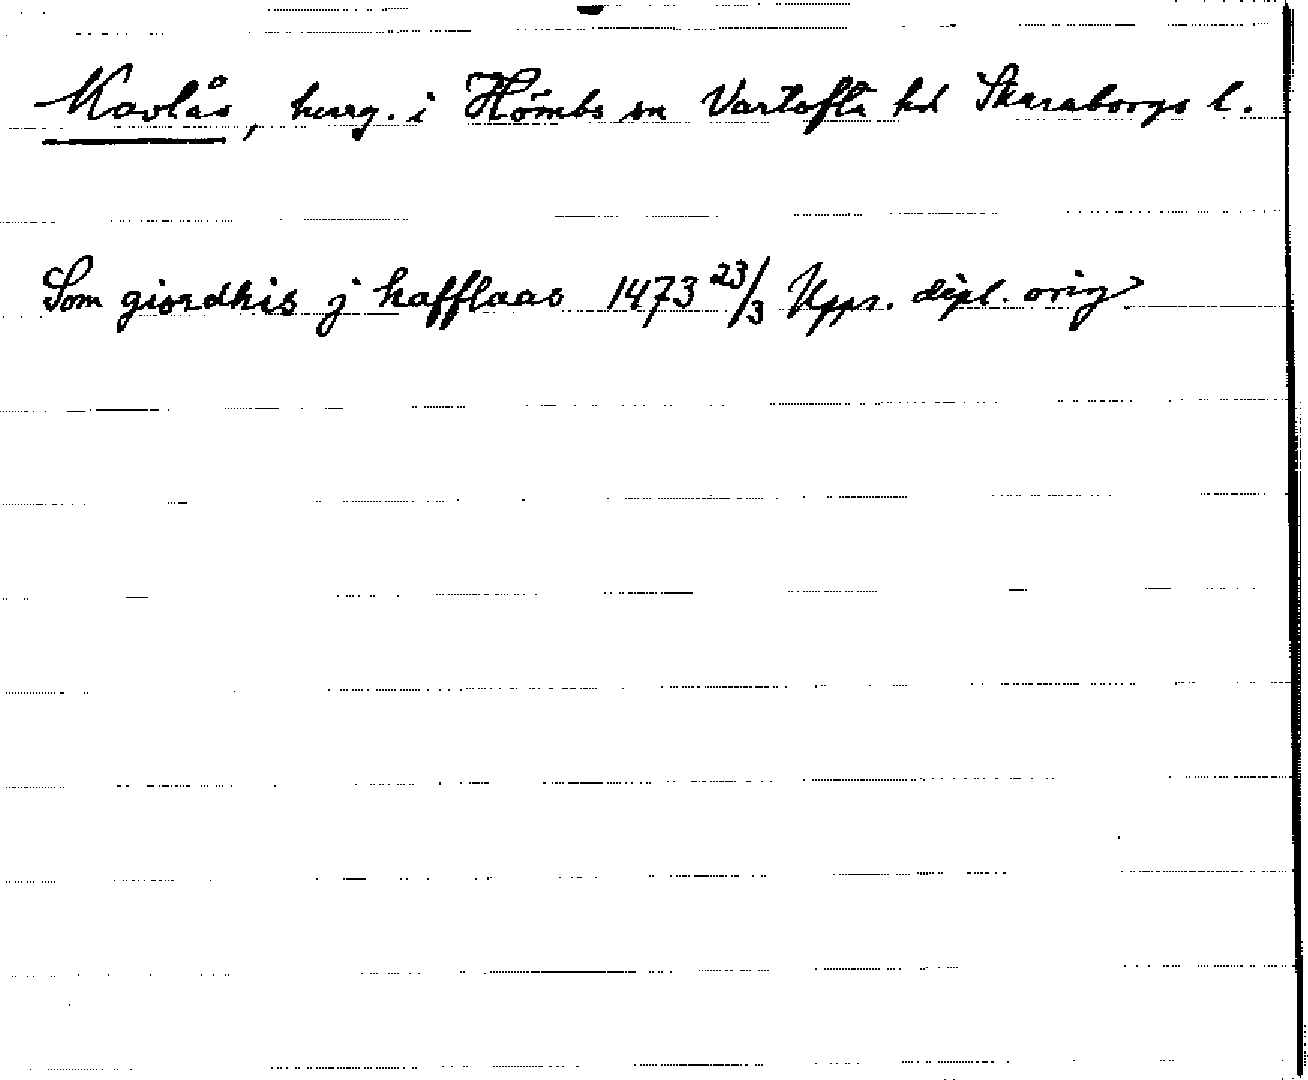 Kavlås, herrg. i Hömbs sn Vartofta hd Skaraborgs l.
Som giordhis j kafflaas 1473 23/3 Upps. dipl. orig.